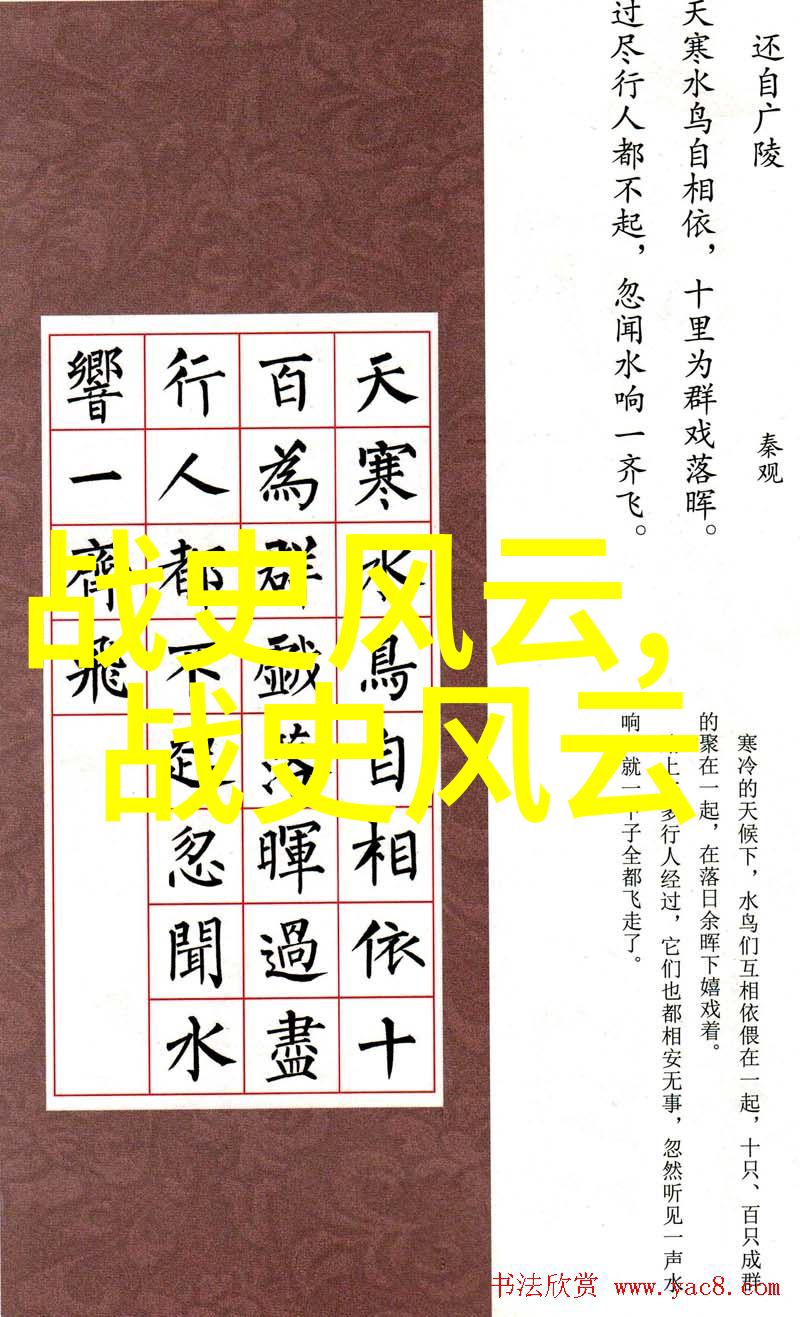 还自广陵
秦观
天寒水鸟自相依，十里为群戏落晖。
过尽行人都不起，忽闻水响一齐飞。
天寒水鳥自相依十
百為群戲落暉過盡
行人都不起忽聞水
響一齊飛
战史风云，
战史风云
寒冷的天候下，水鸟们互相依偎在一起，十只、百只成群
的聚在一起，在落日余晖下嬉戏着。
上 多行人经过，它们也都相安无事，忽然听见一声水
响 就一下子全都飞走了。
书法欣赏 www.yac8.com